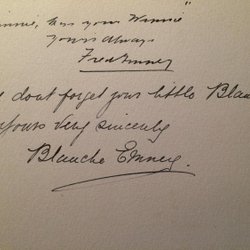 kiss your Winnie"
Yours Always
Fred Emney
dont forget your little Blan
Yours Very Sincerely
Blanche Emney.